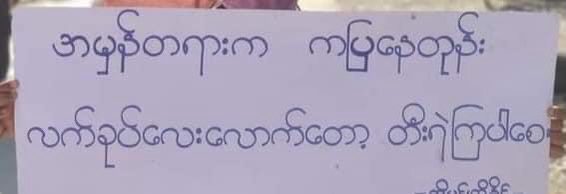 အမှန်တရားက ကပြနေတုန်း
လက်ခုပ်လေးလောက်တော့ တီးရဲကြပါစေ